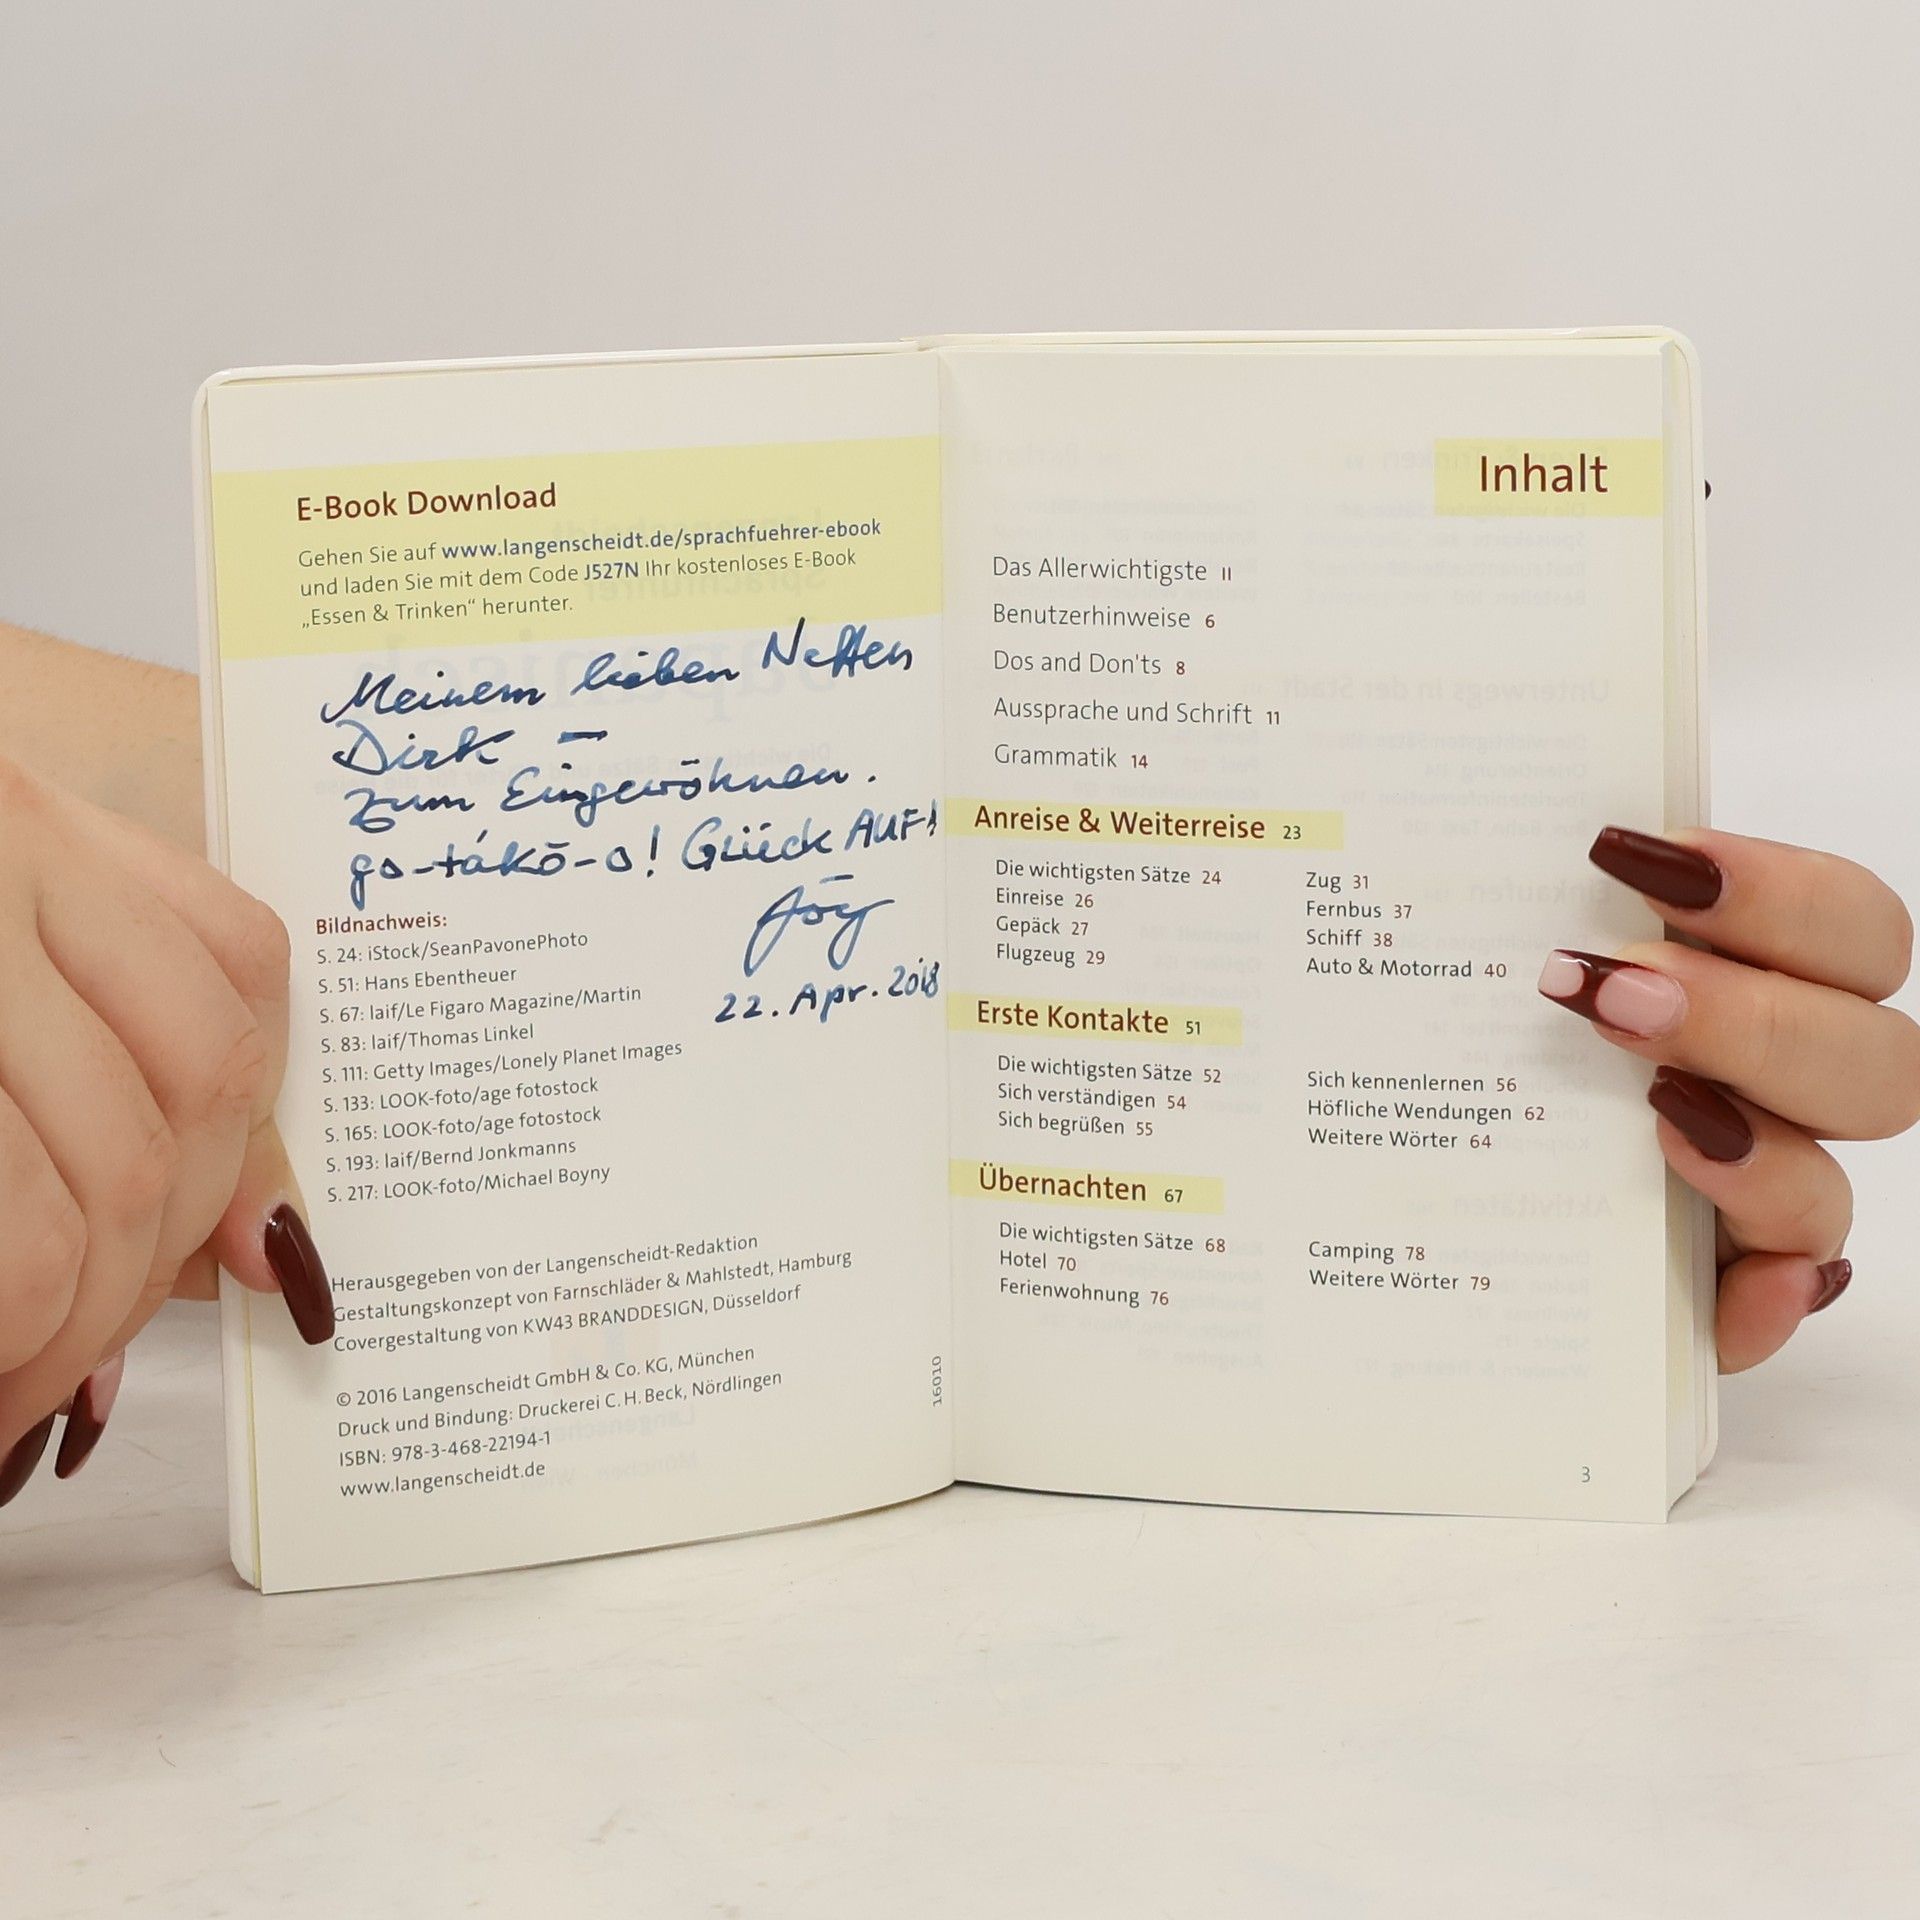 E-Book Download
Gehen Sie auf www.langenscheidt.de/sprachfuehrer-ebook
und laden Sie mit dem Code J527N Ihr kostenloses E-Book
„Essen & Trinken“ herunter.
Meinem lieben Neffen
Dirk –
zum Eingewöhnen.
go-tákō-o! Glück AUF!
22. Apr. 2018
Bildnachweis:
S. 24: iStock/SeanPavonePhoto
S. 51: Hans Ebentheuer
S. 67: laif/Le Figaro Magazine/Martin
S. 83: laif/Thomas Linkel
S. 111: Getty Images/Lonely Planet Images
S. 133: LOOK-foto/age fotostock
S. 165: LOOK-foto/age fotostock
S. 193: laif/Bernd Jonkmanns
S. 217: LOOK-foto/Michael Boyny
Herausgegeben von der Langenscheidt-Redaktion
Gestaltungskonzept von Farnschläder & Mahlstedt, Hamburg
Covergestaltung von KW43 BRANDDESIGN, Düsseldorf
© 2016 Langenscheidt GmbH & Co. KG, München
Druck und Bindung: Druckerei C. H. Beck, Nördlingen
ISBN: 978-3-468-22194-1
www.langenscheidt.de
16010
Inhalt
Das Allerwichtigste II
Benutzerhinweise 6
Dos and Don'ts 8
Aussprache und Schrift 11
Grammatik 14
Anreise & Weiterreise 23
Die wichtigsten Sätze 24
Einreise 26
Gepäck 27
Flugzeug 29
Zug 31
Fernbus 37
Schiff 38
Auto & Motorrad 40
Erste Kontakte 51
Die wichtigsten Sätze 52
Sich verständigen 54
Sich begrüßen 55
Sich kennenlernen 56
Höfliche Wendungen 62
Weitere Wörter 64
Übernachten 67
Die wichtigsten Sätze 68
Hotel 70
Ferienwohnung 76
Camping 78
Weitere Wörter 79
3